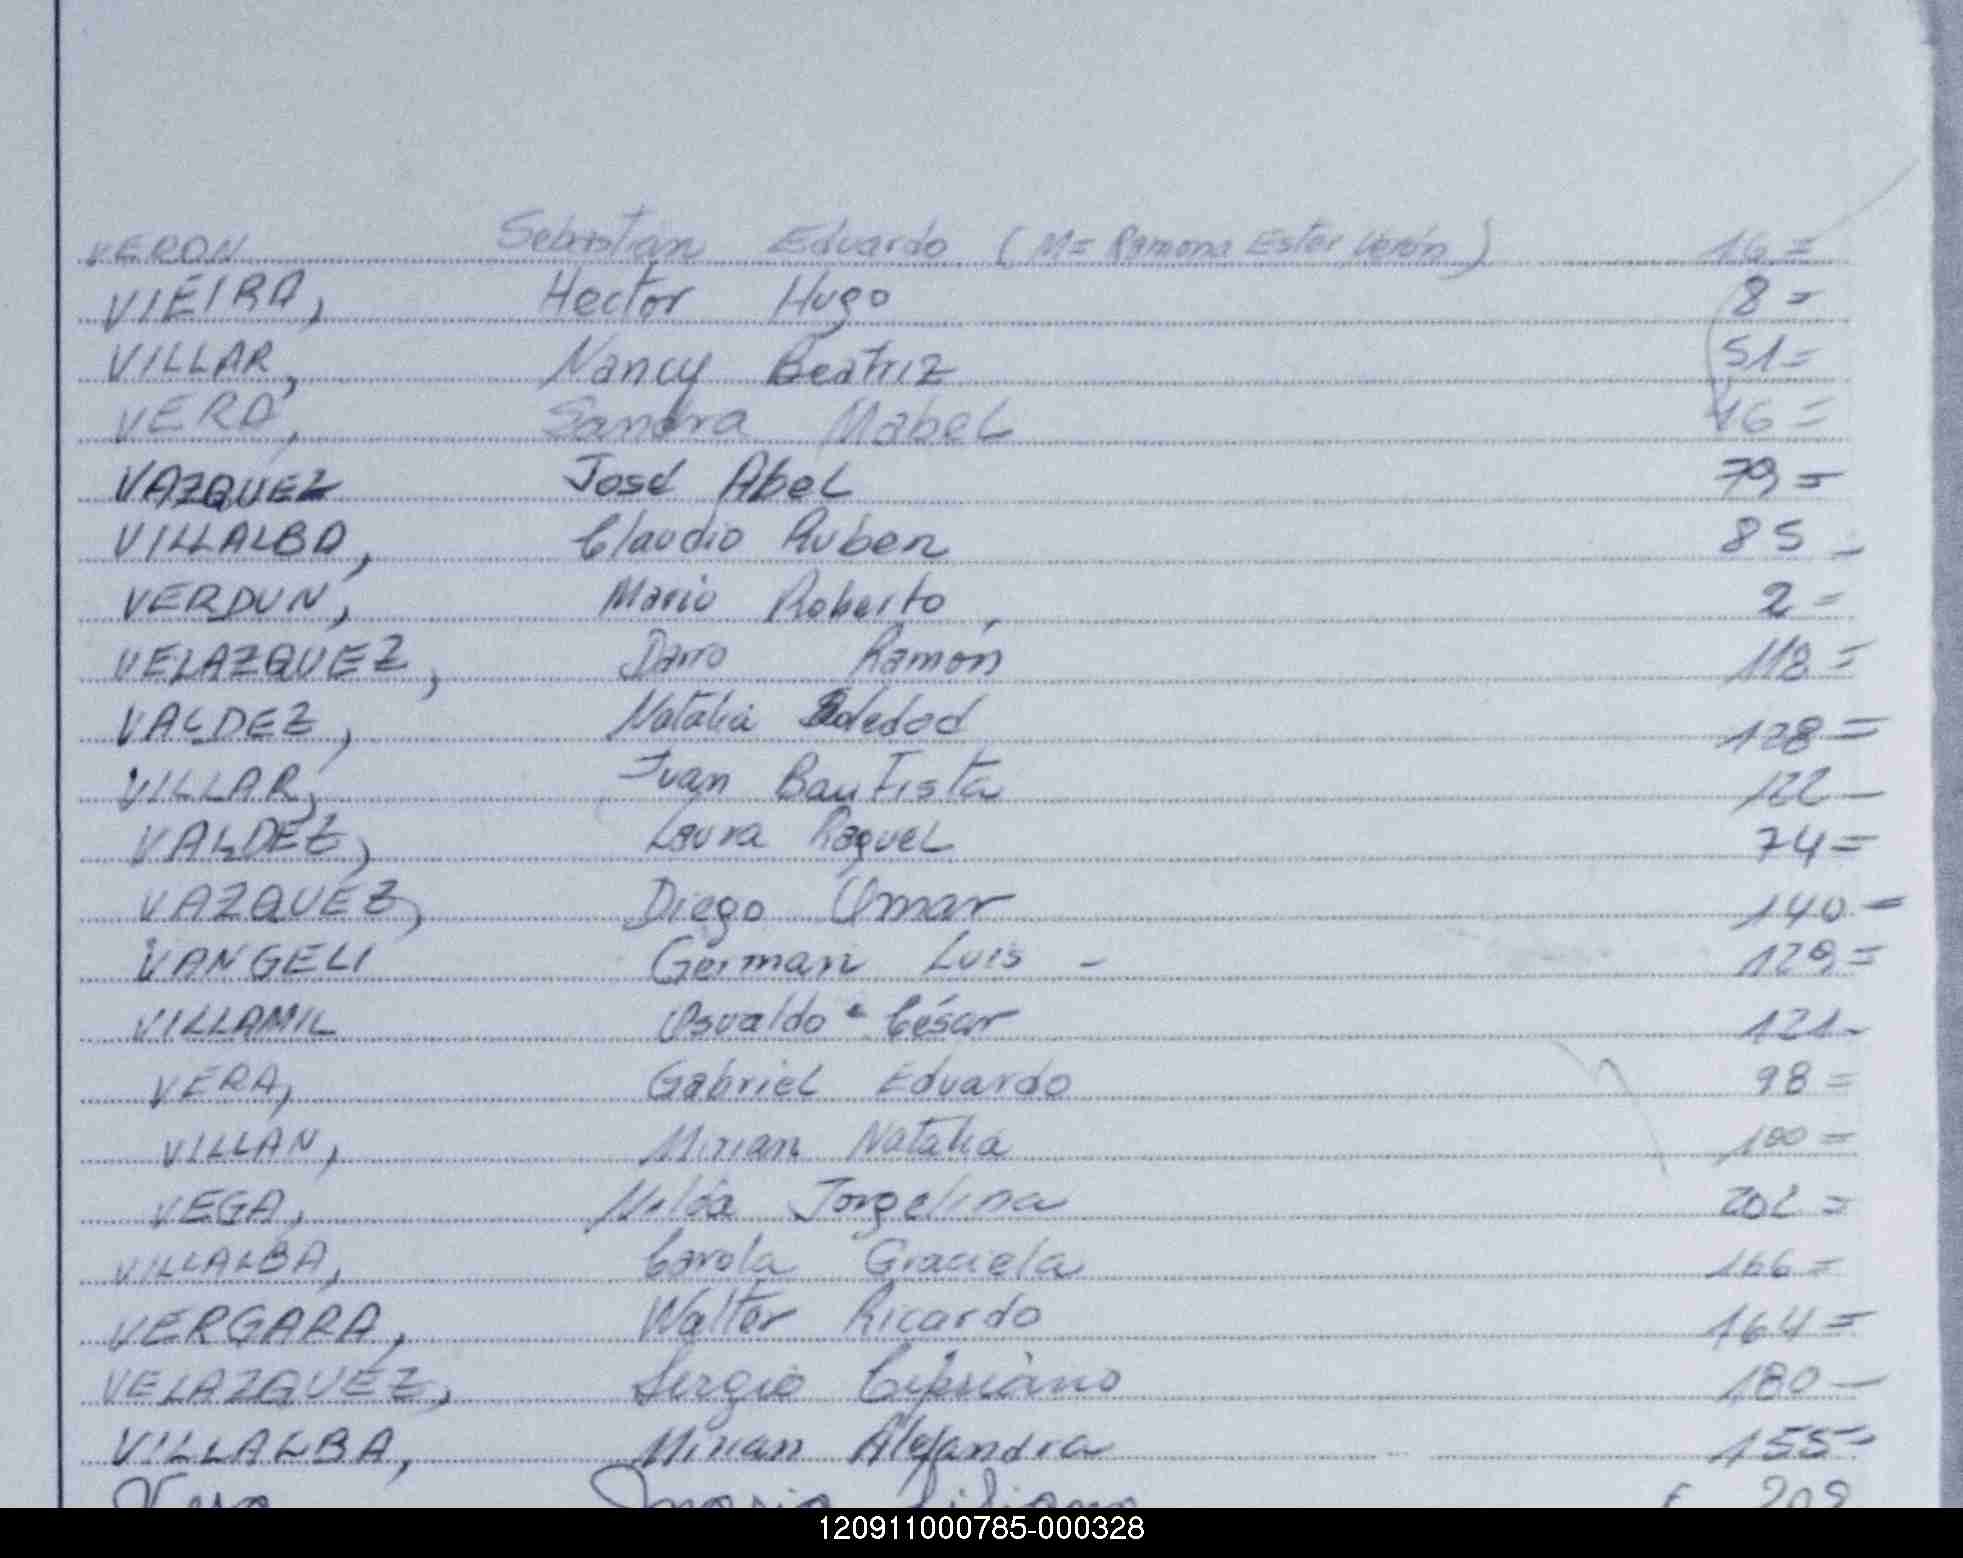 VERON Sebastián Eduardo (M= Ramona Ester Verón) 16=
VIEIRA, Hector Hugo 8=
VILLAR, Nancy Beatriz 51=
VERA, Sandra Mabel 46=
VAZQUEZ José Abel 79=
VILLALBA, Claudio Ruben 85-
VERDUN, Mario Roberto, 2=
VELAZQUEZ, Dario Ramón 118=
VALDEZ, Natalia Soledad 128=
VILLAR, Juan Bautista 122-
VALDEZ, Laura Raquel 74=
VAZQUEZ, Diego Omar 140=
VANGELI German Luis - 129=
VILLAMIL Osvaldo César 121-
VERA, Gabriel Eduardo 98=
VILLAN, Mirian Natalia 100=
VEGA, Nilda Jorgelina 202=
VILLALBA, Carola Graciela 166=
VERGARA, Walter Ricardo 164=
VELAZQUEZ, Sergio Cipriano 180-
VILLALBA, Mirian Alejandra 155=
Vera María Liliana F 208
120911000785-000328